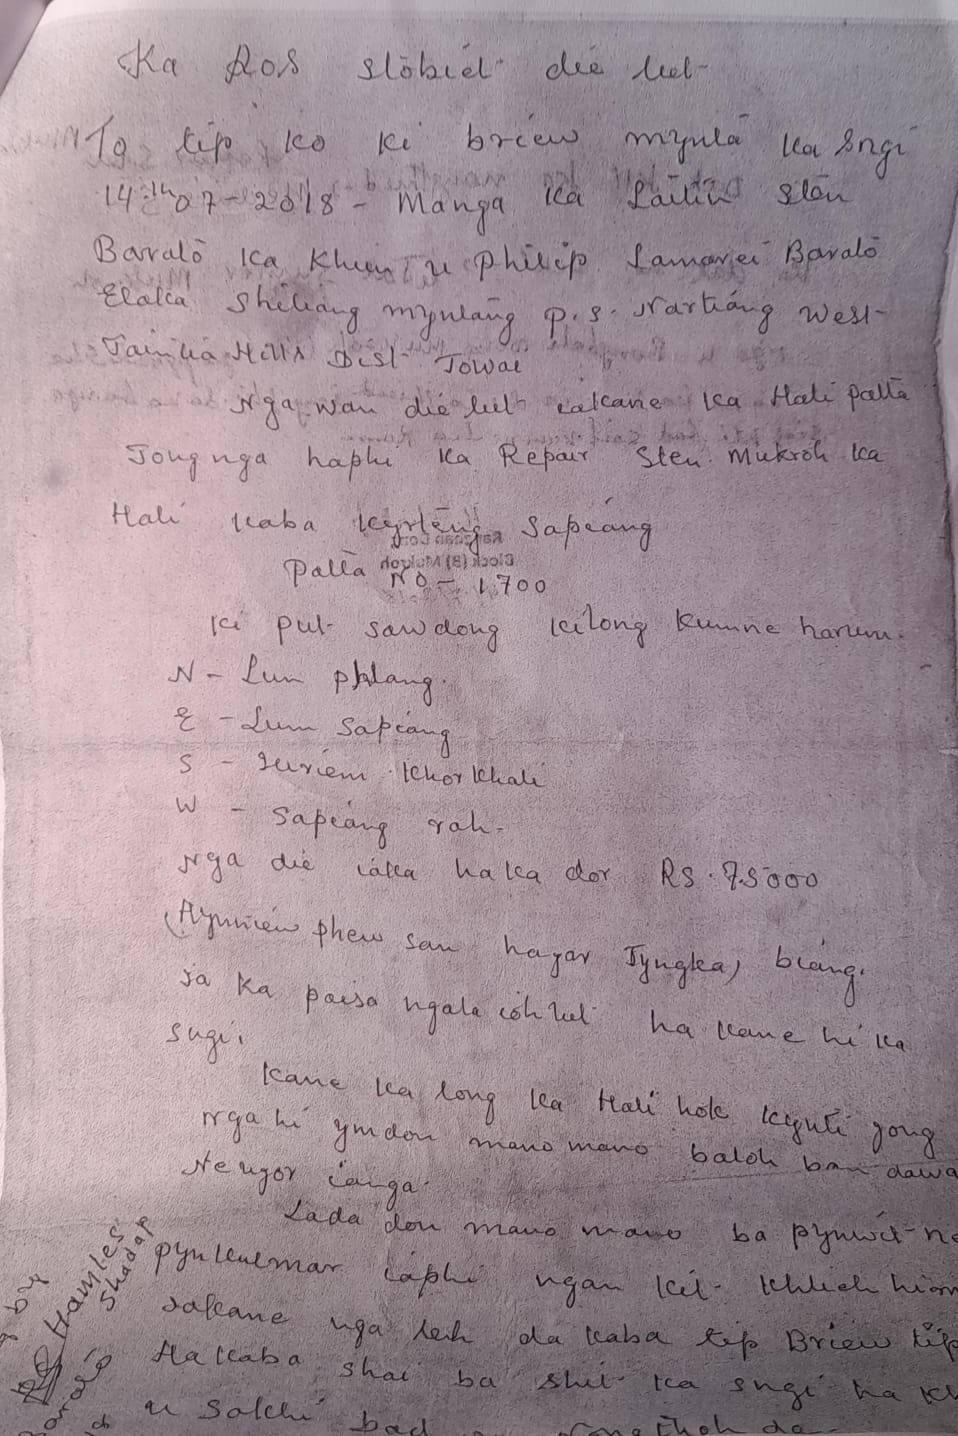 Ka Ros slobiel die lut
To tip ko ki briew mynta ka sngi
14th 07-2018 - Manga ka Laitin sten
Baralo ka khun u Philip Lamarei Baralo
Elaka Shiliang mynlang P.S. Nartiang West
Jaintia Hills Dist Jowai
Nga wan die lut iakane ka Hali patta
Jong nga haphi ka Repair Sten Mukroh ka
Hali kaba kyrteng sapiang
Patta No - 1700
ki put sawdong kilong kumne harum.
N - Lum phlang.
E - Lum Sapiang
S - Iuriem khorkhali
W - Sapiang rah.
Nga die iaka haka dor RS. 75000
(Hynniew phew san hazar Tyngka) biang.
Ia ka paisa ngala ioh lut ha kane hi ka
sngi.
Kane ka long ka Hali hok kynti jong
nga hi ymdon mano mano baloh ban dawa
Ne ugor ianga.
Lada don mano mano ba pynwit ne
pynkulmar iaphi ngan kit khlieh hi
Iakane nga leh da kaba tip Briew tip
Hakaba shai ba shit ka sngi ha
u sakhi bad thoh da
by
Hamles
Shadap